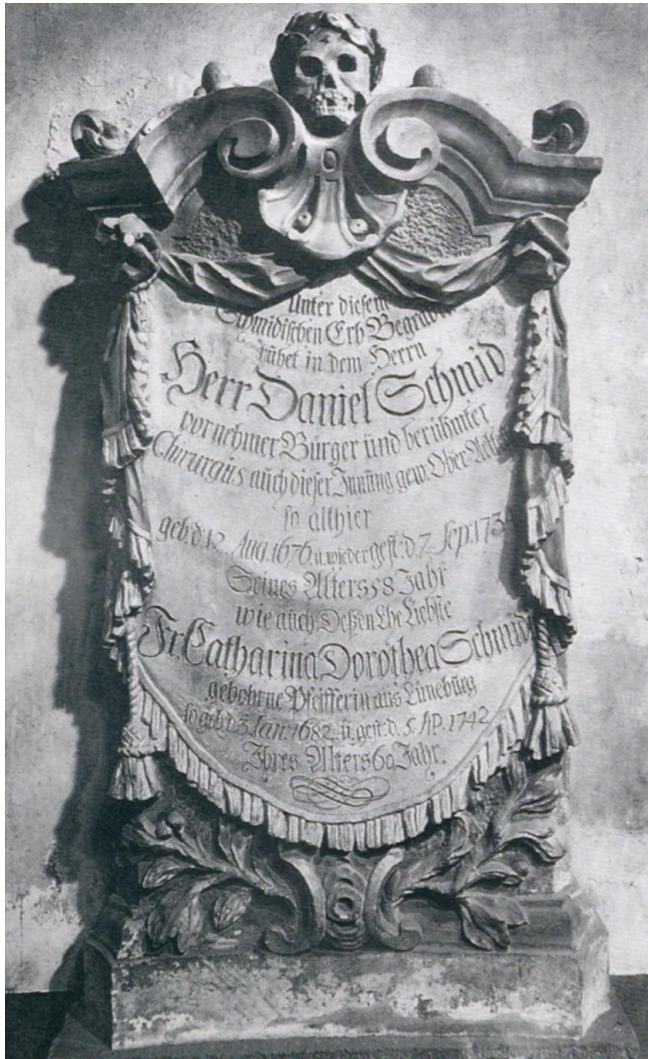 Unter diesem
Schmidischen Erb Begräbn
ruhet in dem Herrn
Herr Daniel Schmid
vornehmer Bürger und berühmter
Chirurgus auch dieser Innung gew. Ober
so althier
geb. d. 12. Aug. 1676. u. wieder gest. d. 7. Sep. 1734
Seines Alters 58 Jahr
wie auch Deßen Ehe Liebste
Fr. Catharina Dorothea Schmid
gebohrne Pfeifferin aus Lüneburg
so geb. d. 3 Jan. 1682. ü. gest. d. 5. Ap. 1742
Ihres Alters 60 Jahr.